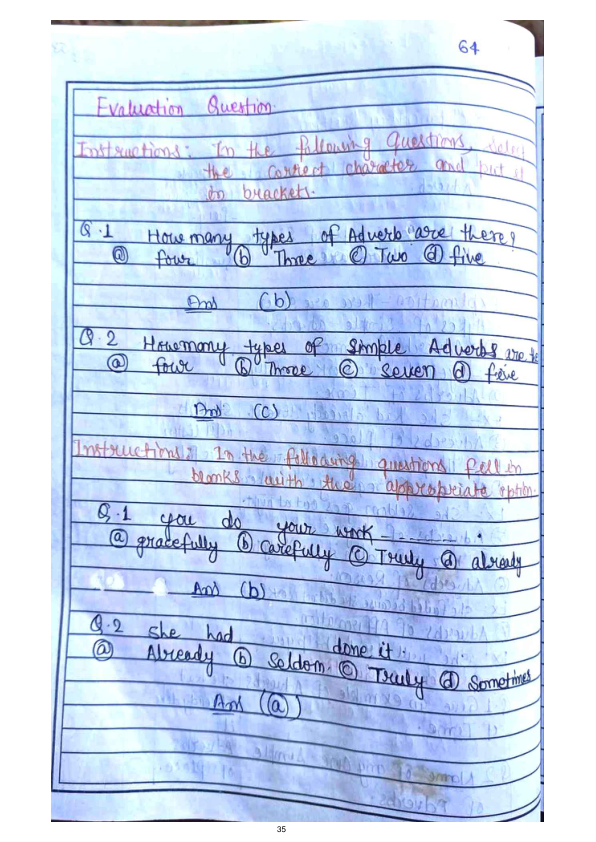 64
Evaluation Question.
Instructions: In the following Questions, select
the correct character and put it
in brackets.
Q.1 How many types of Adverb are there?
(a) four (b) Three (c) Two (d) five
Ans (b)
Q.2 How many types of simple Adverbs are
(a) four (b) Three (c) Seven (d) five
Ans (c)
Instructions: In the following questions fill in
blanks with the appropriate option.
Q.1 you do your work --------.
(a) gracefully (b) carefully (c) Truly (d) already
Ans (b)
Q.2 She had done it.
(a) Already (b) Seldom (c) Truly (d) Sometimes
Ans (a)
35